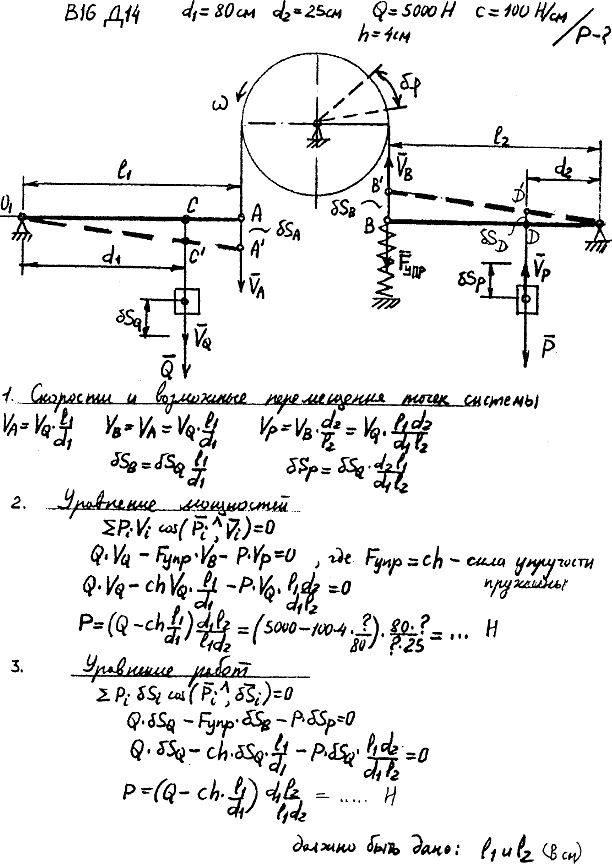 В16 Д14 d₁=80см d₂=25см Q=5000 Н c=100 Н/см
h=4см P-?
δφ
ω
l₁
l₂
V̄_B
B'
D'
d₂
O₁
C
A
δS_A
δS_B
B
δS_D
D
C'
A'
d₁
V̄_A
F̄упр
δS_P
V̄_P
δS_Q
V̄_Q
Q̄
P̄
1. Скорости и возможные перемещения точек системы
V_A=V_Q·l₁/d₁ V_B=V_A=V_Q·l₁/d₁ V_P=V_B·d₂/l₂=V_Q·l₁d₂/d₁l₂
δS_B=δS_Q l₁/d₁ δS_P=δS_Q·d₂l₁/d₁l₂
2. Уравнение мощностей
ΣPᵢVᵢ cos(P̄ᵢ^V̄ᵢ)=0
Q·V_Q − Fупр·V_B − P·V_P=0 , где Fупр=ch − сила упругости
пружины
Q·V_Q − chV_Q·l₁/d₁ − P·V_Q·l₁d₂/d₁l₂=0
P=(Q−ch l₁/d₁)d₁l₂/l₁d₂=(5000−100·4·?/80)·80·?/?·25=... Н
3. Уравнение работ
ΣPᵢ δSᵢ cos(P̄ᵢ^,δS̄ᵢ)=0
Q·δS_Q − Fупр·δS_B − P·δS_P=0
Q·δS_Q − ch·δS_Q·l₁/d₁ − P·δS_Q·l₁d₂/d₁l₂=0
P=(Q−ch·l₁/d₁) d₁l₂/l₁d₂ = ..... Н
должно быть дано: l₁ и l₂ (в см)